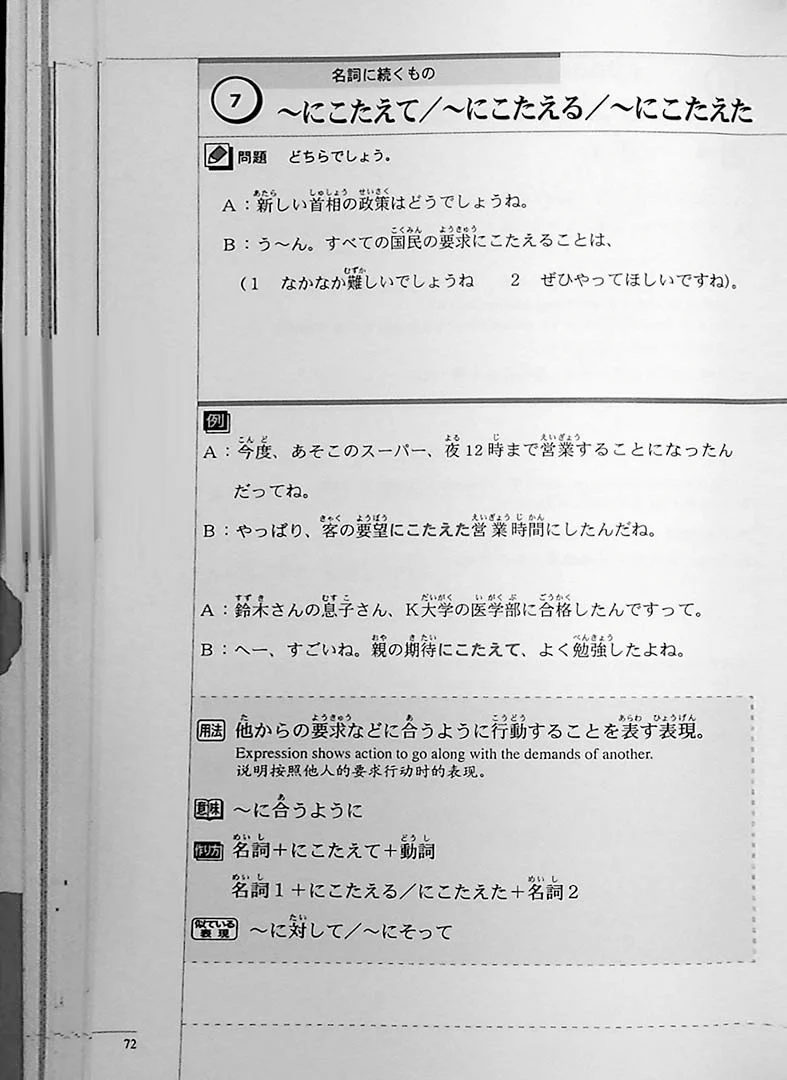 名詞に続くもの
7 ～にこたえて／～にこたえる／～にこたえた
問題 どちらでしょう。
A：新しい首相の政策はどうでしょうね。
B：う～ん。すべての国民の要求にこたえることは、
(1 なかなか難しいでしょうね 2 ぜひやってほしいですね)。
例
A：今度、あそこのスーパー、夜12時まで営業することになったん
だってね。
B：やっぱり、客の要望にこたえた営業時間にしたんだね。
A：鈴木さんの息子さん、K大学の医学部に合格したんですって。
B：へー、すごいね。親の期待にこたえて、よく勉強したよね。
用法 他からの要求などに合うように行動することを表す表現。
Expression shows action to go along with the demands of another.
说明按照他人的要求行动时的表现。
意味 ～に合うように
作り方 名詞＋にこたえて＋動詞
名詞1＋にこたえる／にこたえた＋名詞2
似ている表現 ～に対して／～にそって
72